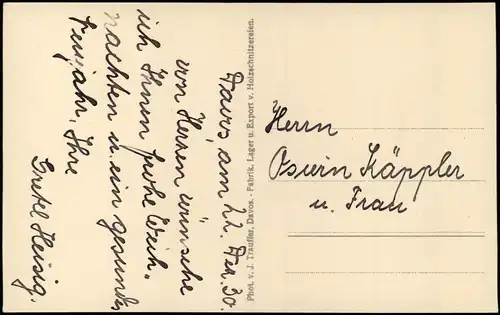 Davos, am 22. Dez. 30.
von Herzen wünsche
ich Ihnen frohe Weih-
nachten u. ein gesundes
Neujahr, Ihre
Gretel Heisig.
Phot. v. J. Trauffer, Davos. - Fabrik, Lager u. Export v. Holzschnitzereien.
Herrn
Oswin Käppler
u. Frau